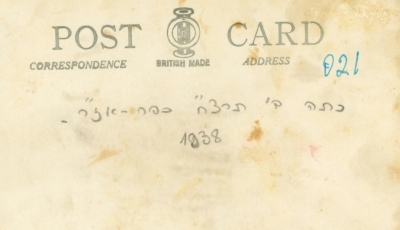 POST CARD
CORRESPONDENCE BRITISH MADE ADDRESS
021
כתה ב' תרצח" כפר-אז"ר.
1938